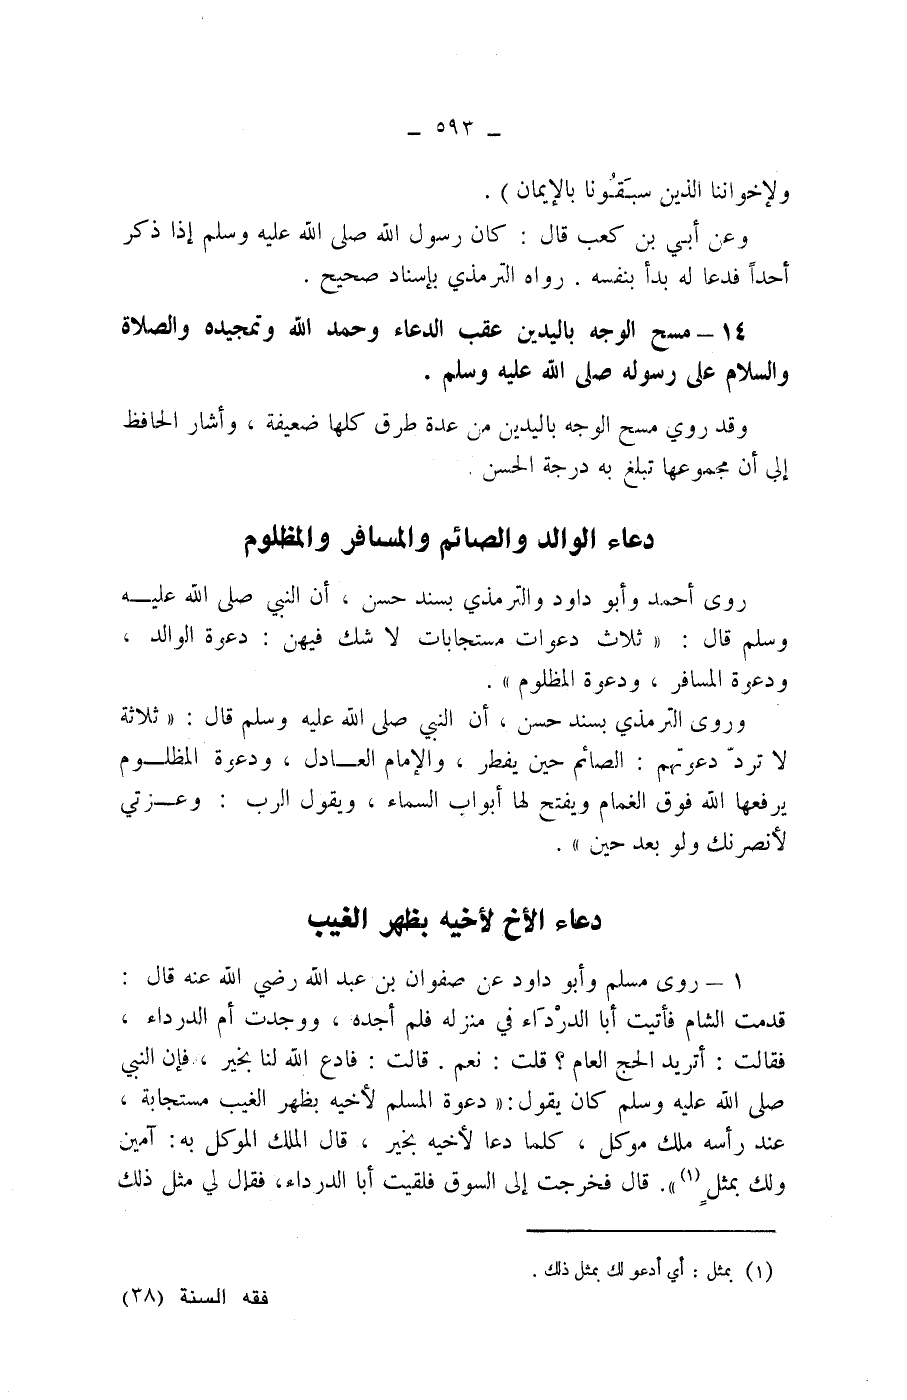 ـ ٥٩٣ ـ
ولإخواننا الذين سبَقُونا بالإيمان ) .
وعن أبي بن كعب قال : كان رسول الله صلى الله عليه وسلم إذا ذكر
أحداً فدعا له بدأ بنفسه . رواه الترمذي بإسناد صحيح .
١٤ ـ مسح الوجه باليدين عقب الدعاء وحمد الله وتمجيده والصلاة
والسلام على رسوله صلى الله عليه وسلم .
وقد روي مسح الوجه باليدين من عدة طرق كلها ضعيفة ، وأشار الحافظ
إلى أن مجموعها تبلغ به درجة الحسن .
دعاء الوالد والصائم والمسافر والمظلوم
روى أحمد وأبو داود والترمذي بسند حسن ، أن النبي صلى الله عليـــه
وسلم قال : « ثلاث دعوات مستجابات لا شك فيهن : دعوة الوالد ،
ودعوة المسافر ، ودعوة المظلوم » .
وروى الترمذي بسند حسن ، أن النبي صلى الله عليه وسلم قال : « ثلاثة
لا تردّ دعوتهم : الصائم حين يفطر ، والإمام العـــادل ، ودعوة المظلـــوم
يرفعها الله فوق الغمام ويفتح لها أبواب السماء ، ويقول الرب : وعـــزتي
لأنصرنك ولو بعد حين » .
دعاء الأخ لأخيه بظهر الغيب
١ ـ روى مسلم وأبو داود عن صفوان بن عبد الله رضي الله عنه قال :
قدمت الشام فأتيت أبا الدرْدَاء في منزله فلم أجده ، ووجدت أم الدرداء ،
فقالت : أتريد الحج العام ؟ قلت : نعم . قالت : فادع الله لنا بخير ، فإن النبي
صلى الله عليه وسلم كان يقول:« دعوة المسلم لأخيه بظهر الغيب مستجابة ،
عند رأسه ملك موكل ، كلما دعا لأخيه بخير ، قال الملك الموكل به: آمين
ولك بمثلٍ (١)». قال فخرجت إلى السوق فلقيت أبا الدرداء، فقال لي مثل ذلك
(١) بمثل : أي أدعو لك بمثل ذلك .
فقه السنة (٣٨)